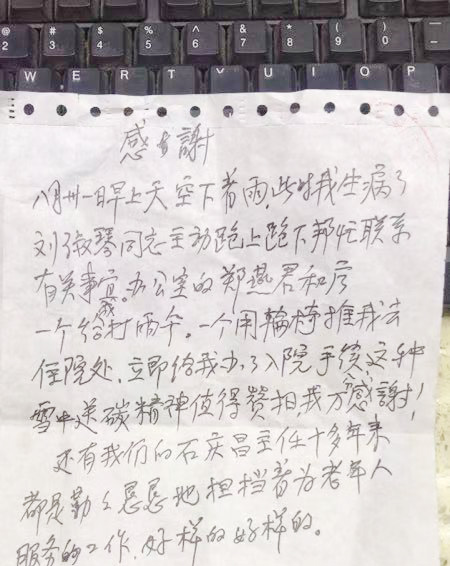 @ # $ % ^ & * ( ) _
2 3 4 5 6 7 8 9 0 -
W E R T Y U I O P
感謝
八月卅一日早上天空下着雨,此时我生病了
刘敏琴同志主动跑上跑下帮忙联系
有关事宜。办公室的郑燕君和
一个给我打雨伞。一个用輪椅推我去
住院处,立即给我办了入院手续,这种
雪中送碳精神值得赞扬我万感謝!
还有我们的石庆昌主任十多年来
都是勤々恳恳地担挡着为老年人
服务的工作,好样的好样的。